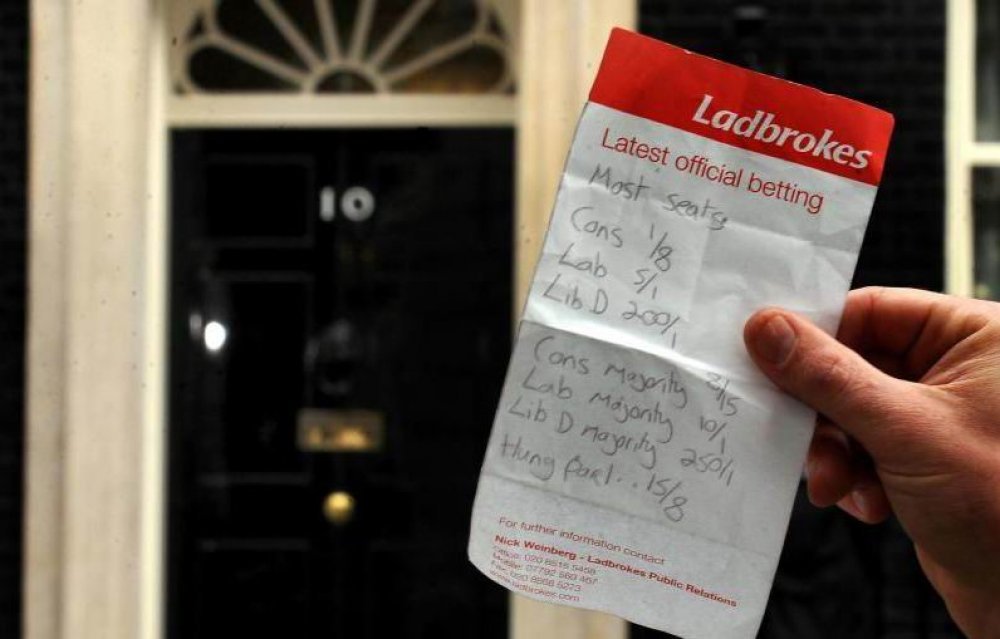 10
Ladbrokes
Latest official betting
Most seats
Cons 1/8
Lab 5/1
Lib D 200/1
Cons Majority 8/15
Lab Majority 10/1
Lib D majority 250/1
Hung Parl.. 15/8
For further information contact
Nick Weinberg - Ladbrokes Public Relations
Office: 020 8515 5458
Mobile: 07792 560 467
Fax: 020 8868 5273
www.ladbrokes.com